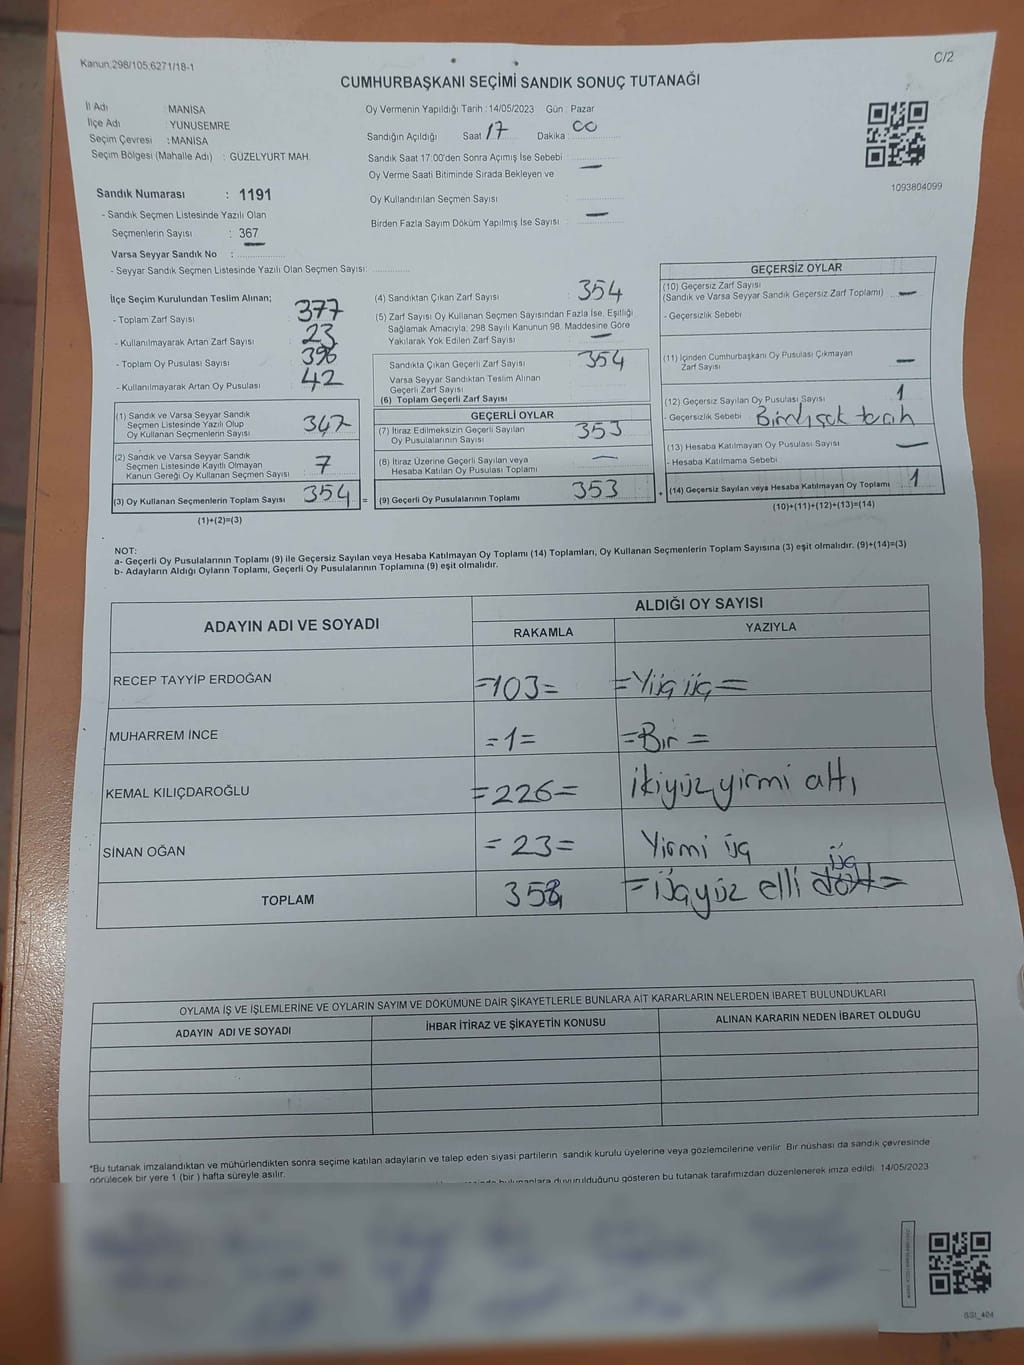 Kanun.298/105.6271/18-1
C/2
CUMHURBAŞKANI SEÇİMİ SANDIK SONUÇ TUTANAĞI
İl Adı : MANİSA
İlçe Adı : YUNUSEMRE
Seçim Çevresi : MANİSA
Seçim Bölgesi (Mahalle Adı) : GÜZELYURT MAH.
Sandık Numarası : 1191
- Sandık Seçmen Listesinde Yazılı Olan
Seçmenlerin Sayısı : 367
Varsa Seyyar Sandık No :
- Seyyar Sandık Seçmen Listesinde Yazılı Olan Seçmen Sayısı:
Oy Vermenin Yapıldığı Tarih : 14/05/2023 Gün : Pazar
Sandığın Açıldığı Saat 17 Dakika : 00
Sandık Saat 17:00'den Sonra Açımış İse Sebebi
Oy Verme Saati Bitiminde Sırada Bekleyen ve
Oy Kullandırılan Seçmen Sayısı :
Birden Fazla Sayım Döküm Yapılmış İse Sayısı :
1093804099
İlçe Seçim Kurulundan Teslim Alınan;
- Toplam Zarf Sayısı 377
- Kullanılmayarak Artan Zarf Sayısı 23
- Toplam Oy Pusulası Sayısı 396
- Kullanılmayarak Artan Oy Pusulası 42
(1) Sandık ve Varsa Seyyar Sandık
Seçmen Listesinde Yazılı Olup
Oy Kullanan Seçmenlerin Sayısı 347
(2) Sandık ve Varsa Seyyar Sandık
Seçmen Listesinde Kayıtlı Olmayan
Kanun Gereği Oy Kullanan Seçmen Sayısı 7
(3) Oy Kullanan Seçmenlerin Toplam Sayısı 354 =
(1)+(2)=(3)
(4) Sandıktan Çıkan Zarf Sayısı 354
(5) Zarf Sayısı Oy Kullanan Seçmen Sayısından Fazla İse, Eşitliği
Sağlamak Amacıyla; 298 Sayılı Kanunun 98. Maddesine Göre
Yakılarak Yok Edilen Zarf Sayısı
Sandıkta Çıkan Geçerli Zarf Sayısı 354
Varsa Seyyar Sandıktan Teslim Alınan
Geçerli Zarf Sayısı
(6) Toplam Geçerli Zarf Sayısı
GEÇERLİ OYLAR
(7) İtiraz Edilmeksizin Geçerli Sayılan
Oy Pusulalarının Sayısı 353
(8) İtiraz Üzerine Geçerli Sayılan veya
Hesaba Katılan Oy Pusulası Toplamı
(9) Geçerli Oy Pusulalarının Toplamı 353 +
GEÇERSİZ OYLAR
(10) Geçersiz Zarf Sayısı
(Sandık ve Varsa Seyyar Sandık Geçersiz Zarf Toplamı)
- Geçersizlik Sebebi
(11) İçinden Cumhurbaşkanı Oy Pusulası Çıkmayan
Zarf Sayısı
(12) Geçersiz Sayılan Oy Pusulası Sayısı 1
- Geçersizlik Sebebi
(13) Hesaba Katılmayan Oy Pusulası Sayısı
- Hesaba Katılmama Sebebi
(14) Geçersiz Sayılan veya Hesaba Katılmayan Oy Toplamı 1
(10)+(11)+(12)+(13)=(14)
NOT:
a- Geçerli Oy Pusulalarının Toplamı (9) ile Geçersiz Sayılan veya Hesaba Katılmayan Oy Toplamı (14) Toplamları, Oy Kullanan Seçmenlerin Toplam Sayısına (3) eşit olmalıdır. (9)+(14)=(3)
b- Adayların Aldığı Oyların Toplamı, Geçerli Oy Pusulalarının Toplamına (9) eşit olmalıdır.
ADAYIN ADI VE SOYADI
ALDIĞI OY SAYISI
RAKAMLA YAZIYLA
RECEP TAYYİP ERDOĞAN =103= =Yüz üç=
MUHARREM İNCE =1= =Bir=
KEMAL KILIÇDAROĞLU =226= ikiyüz yirmi altı
SİNAN OĞAN =23= Yirmi üç
TOPLAM =üçyüz elli dört üç=
OYLAMA İŞ VE İŞLEMLERİNE VE OYLARIN SAYIM VE DÖKÜMÜNE DAİR ŞİKAYETLERLE BUNLARA AİT KARARLARIN NELERDEN İBARET BULUNDUKLARI
ADAYIN ADI VE SOYADI İHBAR İTİRAZ VE ŞİKAYETİN KONUSU ALINAN KARARIN NEDEN İBARET OLDUĞU
*Bu tutanak imzalandıktan ve mühürlendikten sonra seçime katılan adayların ve talep eden siyasi partilerin sandık kurulu üyelerine veya gözlemcilerine verilir. Bir nüshası da sandık çevresinde
görülecek bir yere 1 (bir) hafta süreyle asılır.
duyurulduğunu gösteren bu tutanak tarafımızdan düzenlenerek imza edildi. 14/05/2023